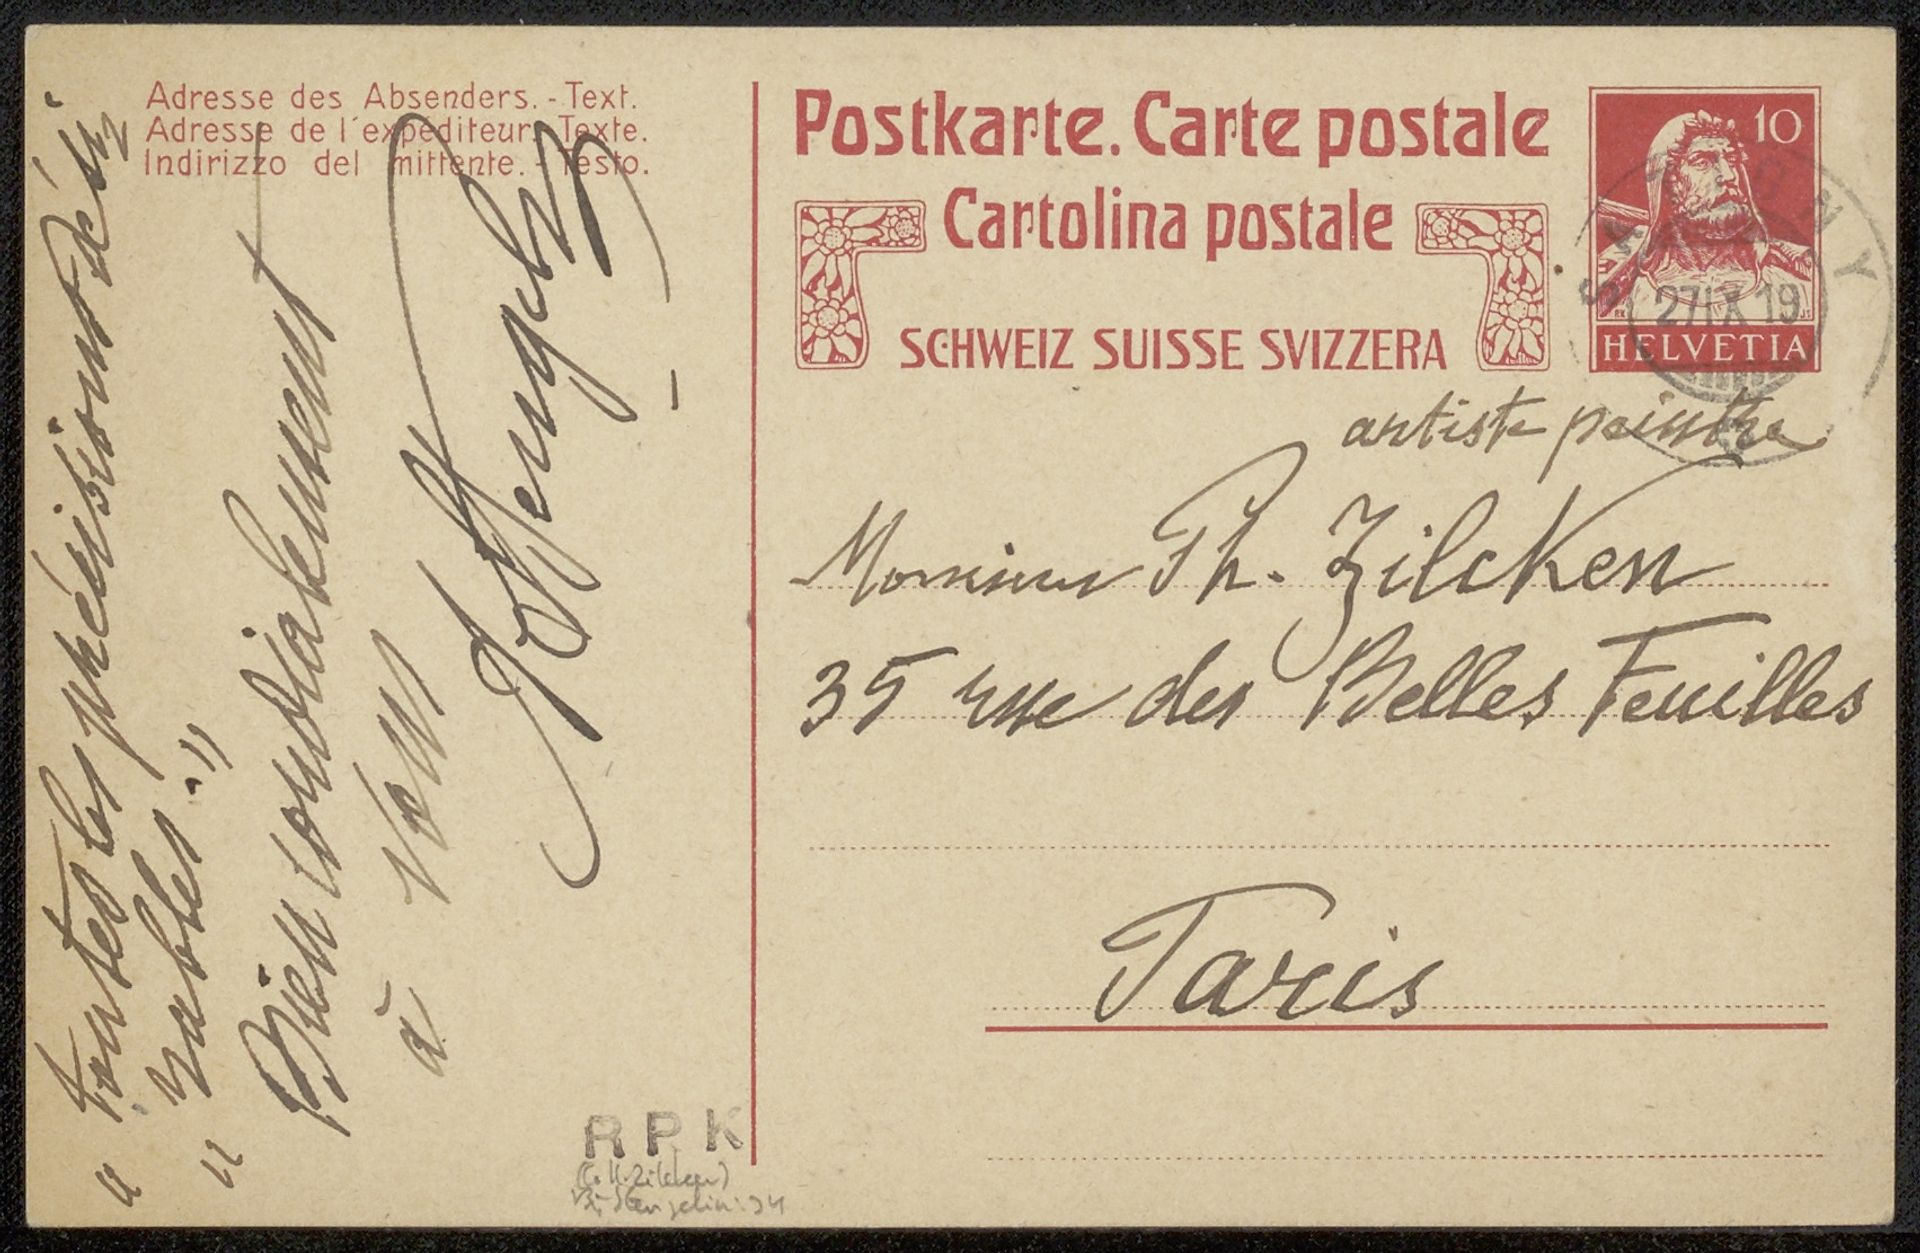 Adresse des Absenders. - Text.
Adresse de l'expéditeur. - Texte.
Indirizzo del mittente. - Testo.
Postkarte. Carte postale
Cartolina postale
SCHWEIZ SUISSE SVIZZERA
10
HELVETIA
SATIGNY
27 IX 19
artiste peintre
Monsieur Ph. Zilcken
35 rue des Belles Feuilles
Paris
" toutes les précisions dési
" rables."
Bien cordialement
à vous
Stengelin
RPK
(Coll. Zilcken)
Stengelin: 34